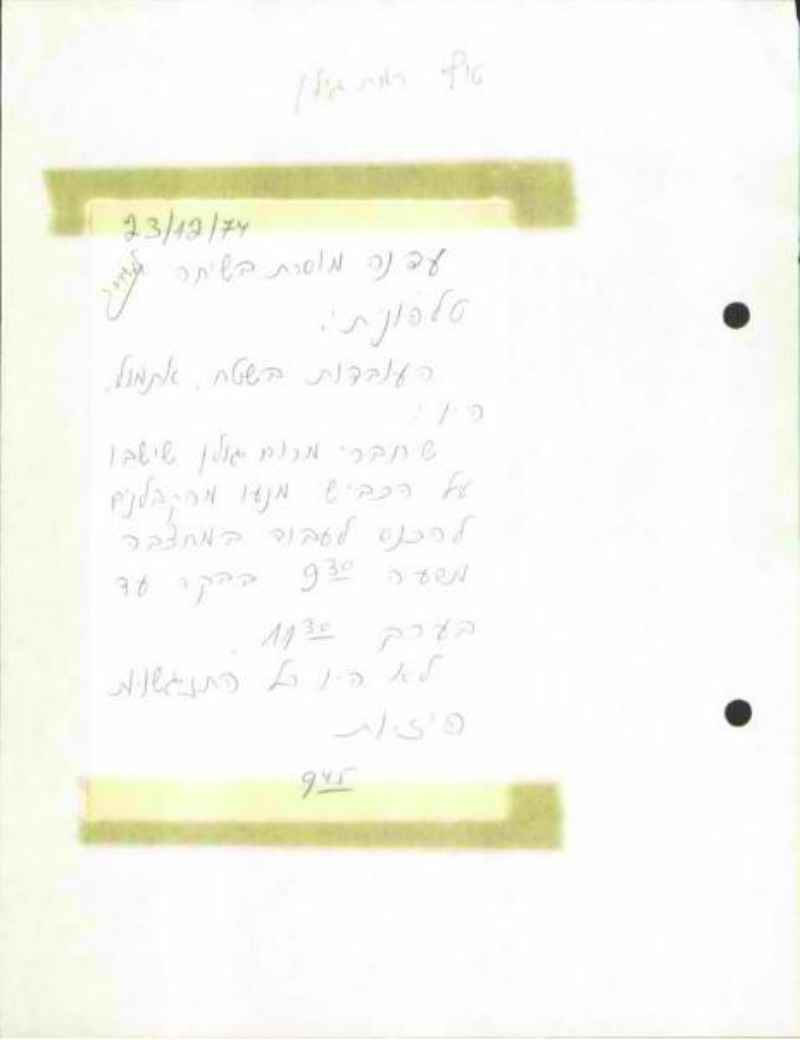 רמת גולן
23/12/74
עדנה מוסרת בשיחה
טלפונית:
העובדות בשטח אתמול
היו:
שחברי מרום גולן שישבו
על הכביש מנעו מהקבלנים
להכנס לעבוד במחצבה
משעה 9 30 בבקר עד
בערב 11 30.
לא היו כל התנגשויות
פיזיות
9 45